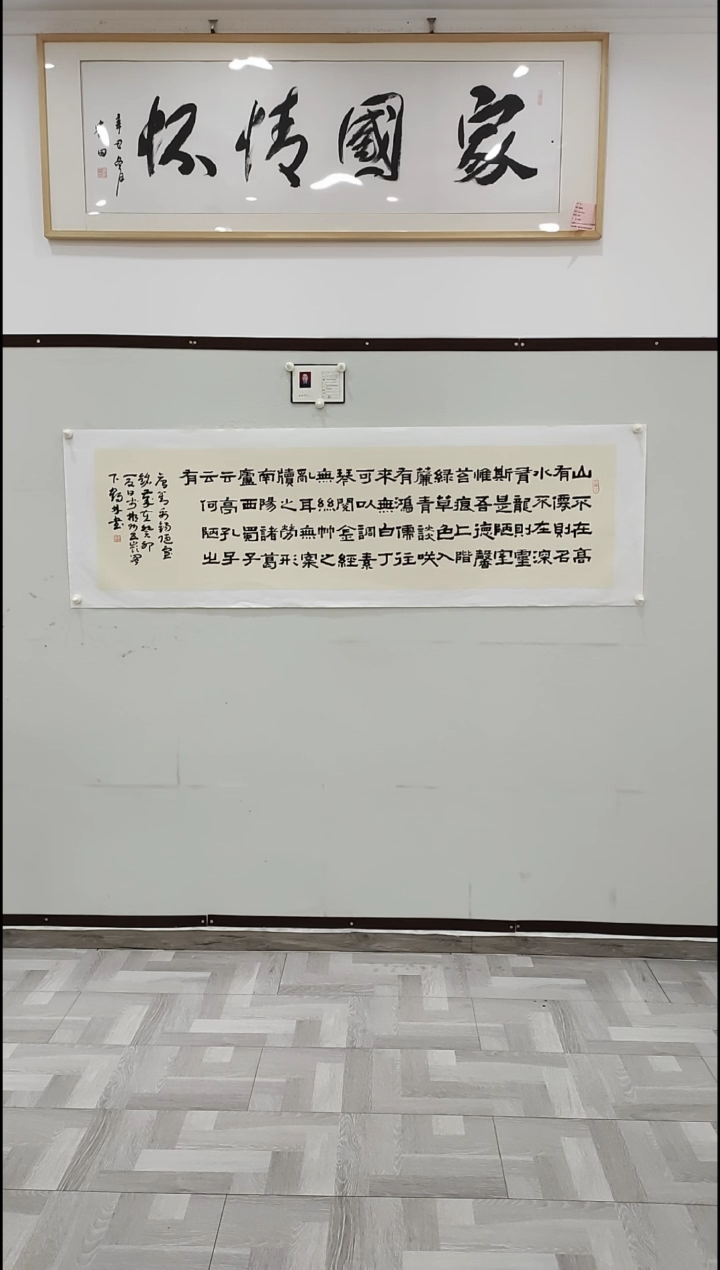 家國情怀
辛丑冬月
山不在高
有僊則名
水不在深
有龍則靈
斯是陋室
惟吾德馨
苔痕上階
綠草色入
簾青談咲
有鴻儒往
來無白丁
可以調素
琴閱金經
無絲竹之
亂耳無案
牘之勞形
南陽諸葛
廬西蜀子
云亭孔子
云何陋之
有
唐劉禹錫陋室
銘歲在癸卯